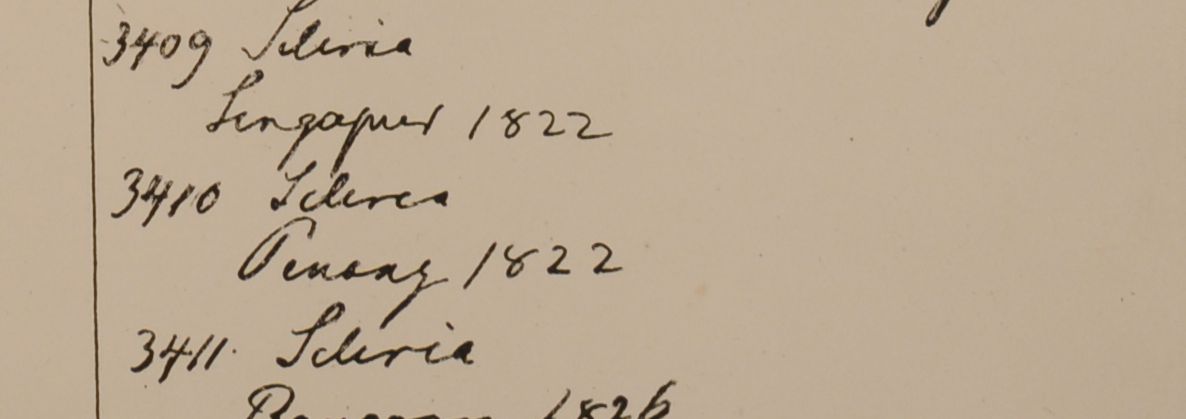 3409 Scleria
Singapur 1822
3410 Scleria
Penang 1822
3411. Scleria
1826